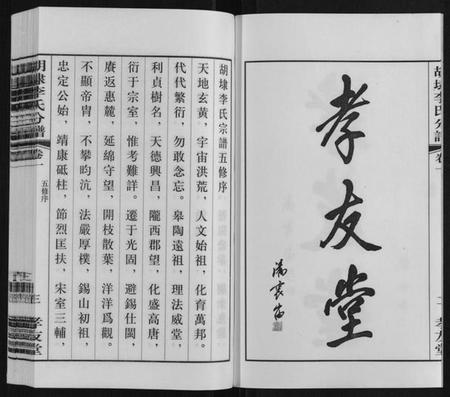 胡埭李氏分譜 卷一
孝友堂
二 孝友堂
胡埭李氏宗譜五修序
天地玄黃，宇宙洪荒，人文始祖，化育萬邦。
代代繁衍，勿敢念忘。皋陶遠祖，理法威堂，
利貞樹名，天德興昌，隴西郡望，化盛高唐，
衍于宗室，惟考難詳。遷于光固，避錫仕閩，
賡返惠麓，延綿守望，開枝散葉，洋洋爲觀。
不顯帝胄，不攀昀沆，法嚴厚樸，錫山初祖，
忠定公始，靖康砥柱，節烈匡扶，宋室三輔，
胡埭李氏分譜 卷一 五修序
三 孝友堂